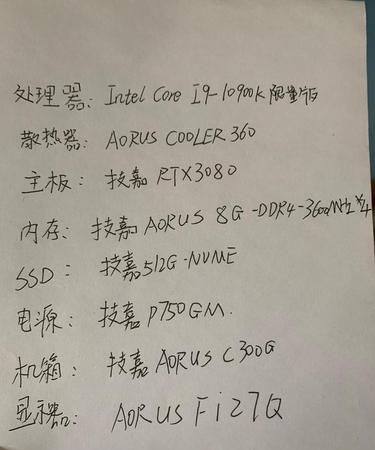 处理器：Intel Core I9-10900K 限量版
散热器：AORUS COOLER 360
主板：技嘉 RTX3080
内存：技嘉 AORUS 8G-DDR4-3600MHz*4
SSD：技嘉512G-NVME
电源：技嘉 P750GM.
机箱：技嘉 AORUS C300G
显示器：AORUS Fi27Q